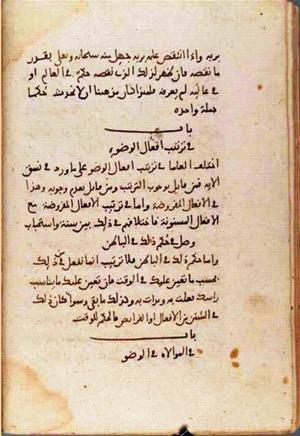 بربه واذا انتقص علمه بربه جهل منه سبحانه وتعلى بقدر
ما نقصه فان ظهر لذلك الذى نقصه حكم في العالم او
في عالمه لم يعرفه فلهذا كان مذهبنا ان لا نفوت حكما
جملة واحده
باب
في ترتيب افعال الوضو
اختلف العلما في ترتيب افعال الوضو على ما ورد في نسق
الايه فمن قايل بوجوب الترتيب ومن قايل بعدم وجوبه وهذا
في الافعال المفروضة واما في ترتيب الافعال المفروضة مع
الافعال المسنونة فاختلافهم في ذلك بين سنة واستحباب
وصل في حكم ذلك في الباطن
واما حكم ذلك في الباطن فلا ترتيب انما تفعل من ذلك
بحسب ما تعين عليك في الوقت فان تعين عليك ما يناسب
راسك فعلت به وبدات به وكذلك ما بقي وسوا كان ذلك
في السنن من الافعال او الفرايض فالحكم للوقت
باب
في الموالاة في الوضو